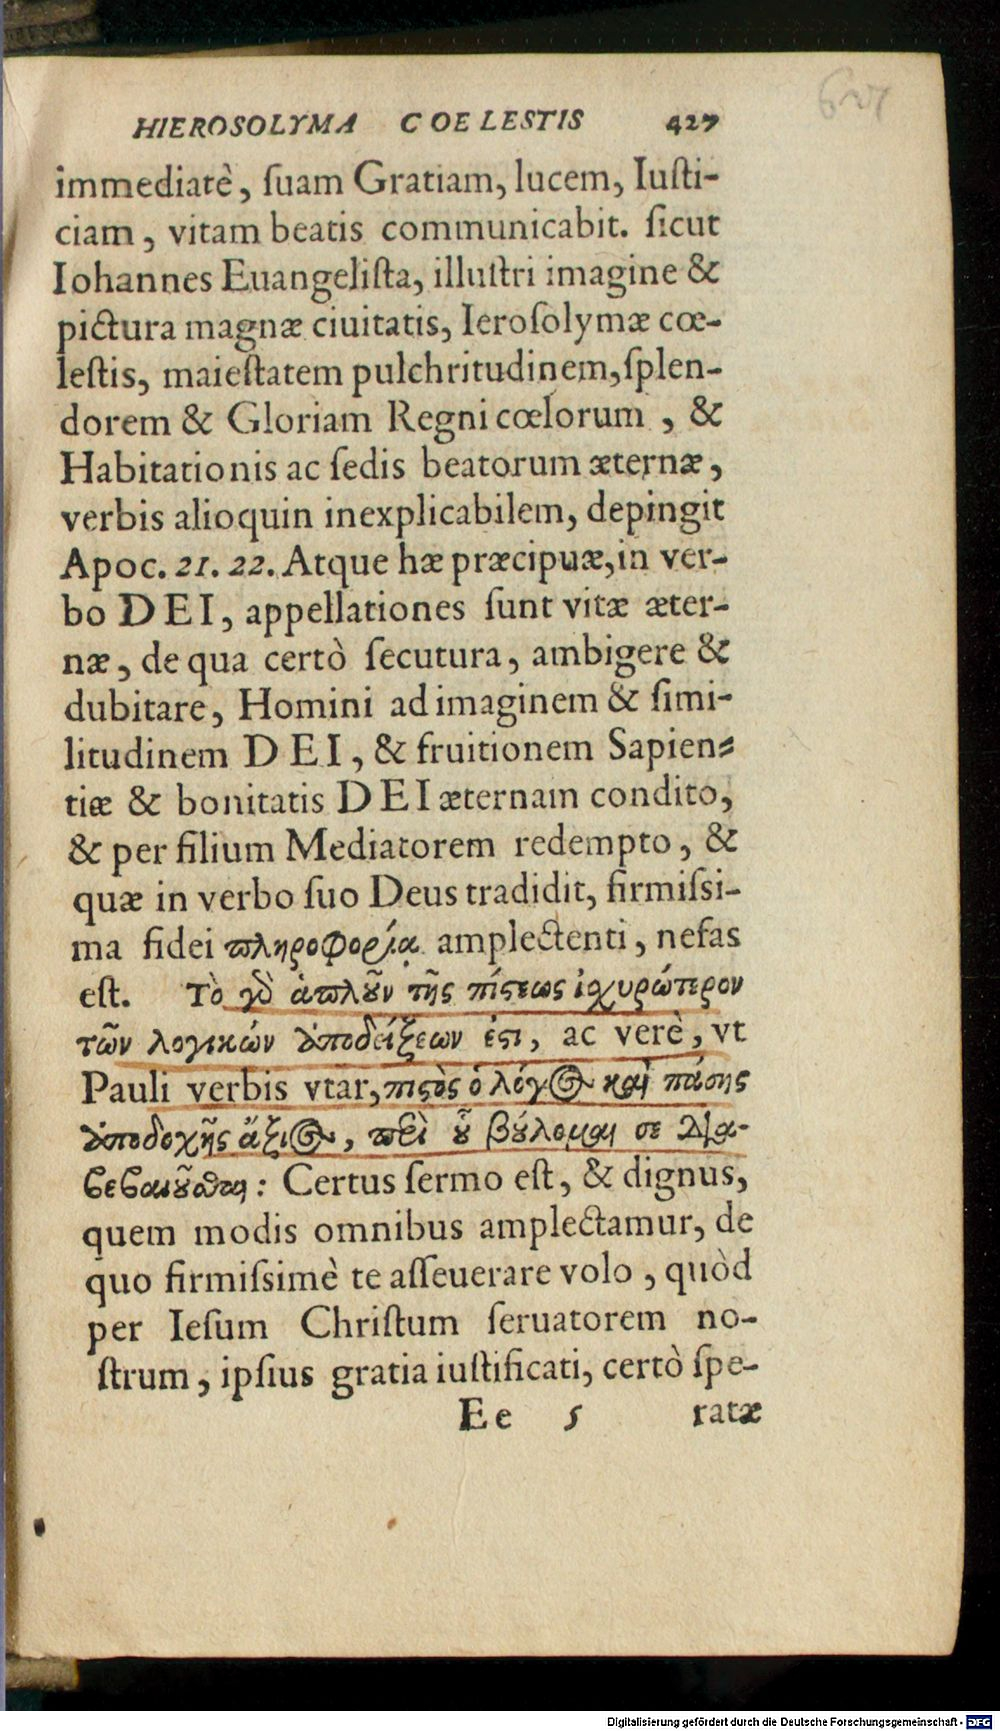 HIEROSOLYMA COELESTIS 427
627
immediatè, ſuam Gratiam, lucem, Iuſti-
ciam, vitam beatis communicabit. ſicut
Iohannes Euangeliſta, illuſtri imagine &
pictura magnæ ciuitatis, Ieroſolymæ cœ-
leſtis, maieſtatem pulchritudinem, ſplen-
dorem & Gloriam Regni cœlorum, &
Habitationis ac ſedis beatorum æternæ,
verbis alioquin inexplicabilem, depingit
Apoc. 21. 22. Atque hæ præcipuæ, in ver-
bo DEI, appellationes ſunt vitæ æter-
næ, de qua certò ſecutura, ambigere &
dubitare, Homini ad imaginem & ſimi-
litudinem DEI, & fruitionem Sapien-
tiæ & bonitatis DEI æternam condito,
& per filium Mediatorem redempto, &
quæ in verbo ſuo Deus tradidit, firmiſsi-
ma fidei πληροφορίᾳ amplectenti, nefas
est. Τὸ γὸ ἁπλοῦν τῆς πίστεως ἰσχυρώτερον
τῶν λογικών ἀποδείξεων ἐστι, ac verè, vt
Pauli verbis vtar, πιστὸς ὁ λόγος καὶ πάσης
ἀποδοχῆς ἄξιος, περὶ οὗ βούλομαι σε δια-
βεβαιοῦσθαι: Certus ſermo eſt, & dignus,
quem modis omnibus amplectamur, de
quo firmiſsimè te aſſeuerare volo, quòd
per Ieſum Chriſtum ſeruatorem no-
ſtrum, ipſius gratia iuſtificati, certò ſpe-
Ee 5 ratæ
Digitalisierung gefördert durch die Deutsche Forschungsgemeinschaft - DFG